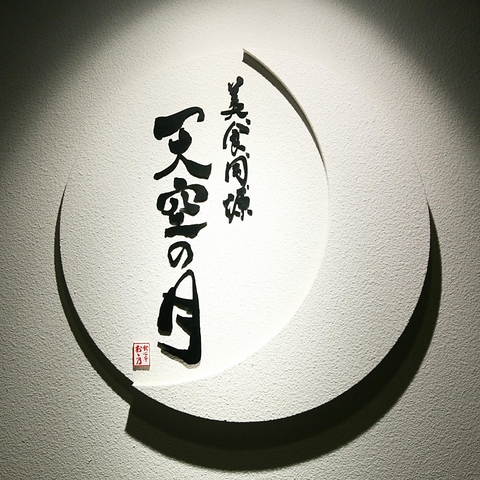 美食同源
天空の月